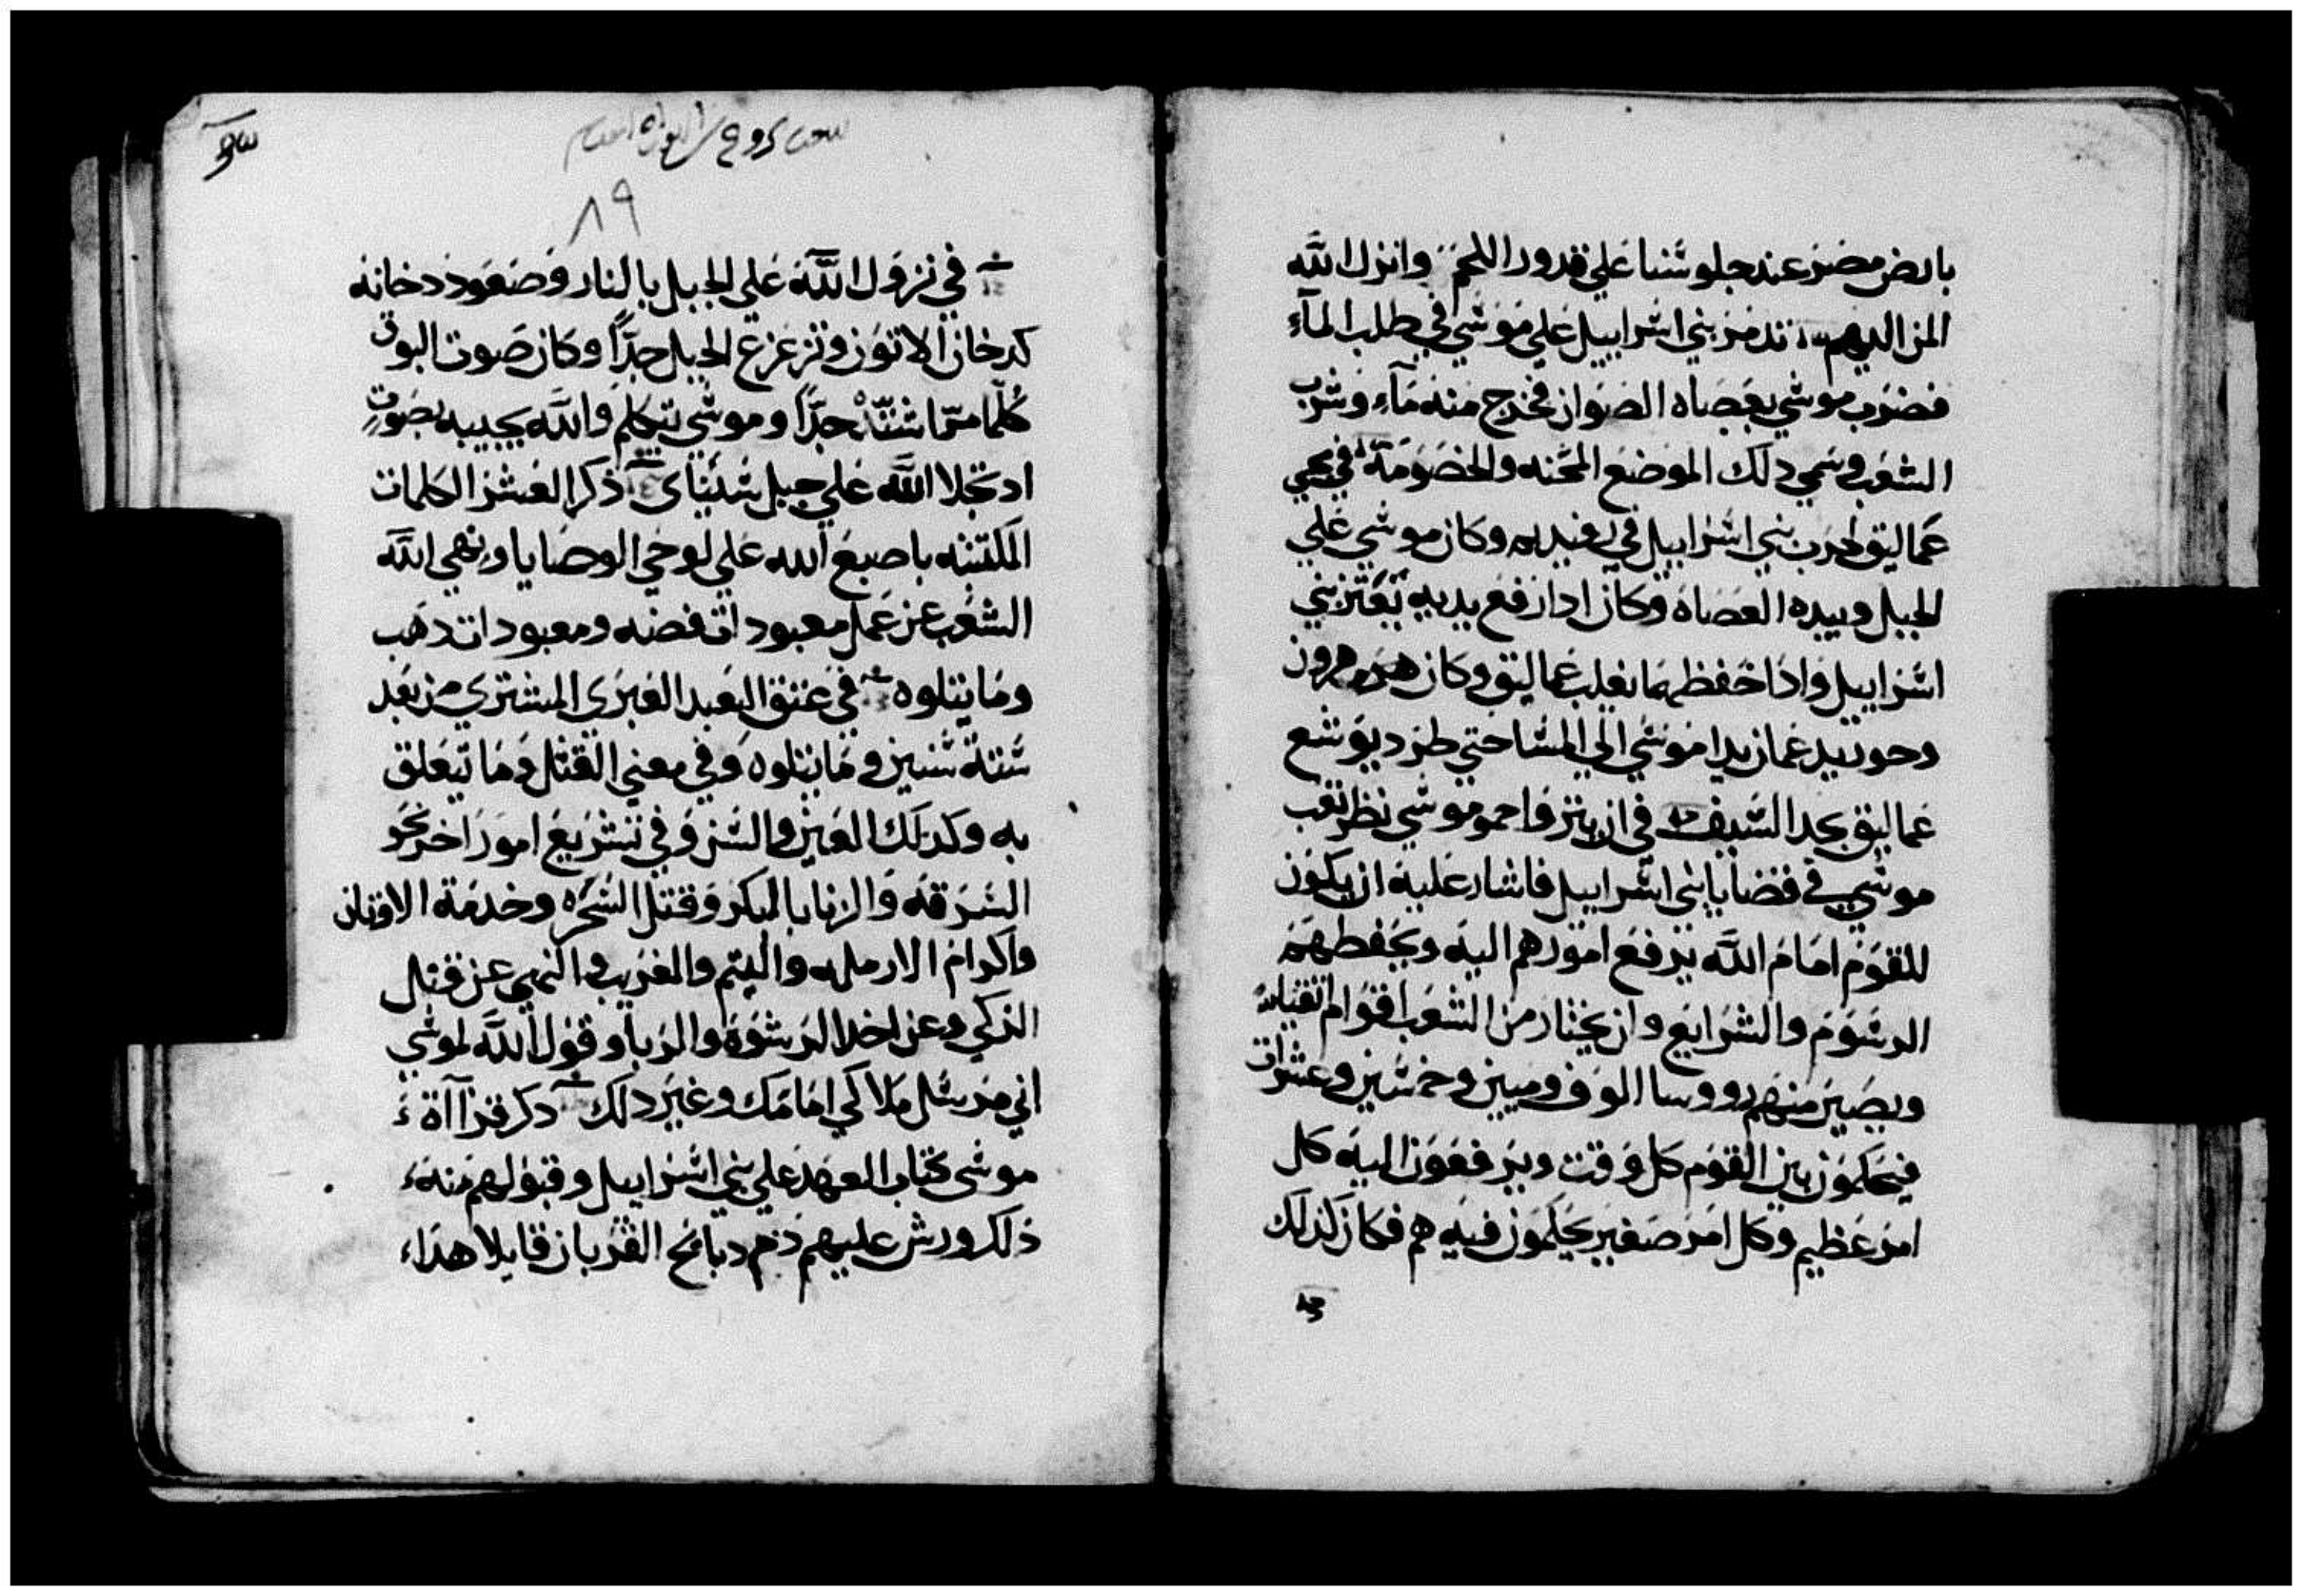 بارض مصر عند جلوسنا علي قدور اللحم وانزل الله
المن اليهم تذمر بني اسراييل علي موسي في طلب المآء
فضرب موسي بعصاه الصوان فخرج منه مآء وشرب
الشعب وسمي دلك الموضع المحنه والخصومة في مجي
عماليق لحرب بني اسراييل في رفيديم وكان موسي علي
الجبل وبيده العصاه وكان ادا رفع يديه تعتز بني
اسراييل وادا خفظهما يغلب عماليق وكان هرون
وحور يدعمان يدا موسي الي المسا حتي طرد يوشع
عماليق بحد السيف في ان يترو احمو موسي نظر تعب
موسي في قضايا بني اسراييل فاشار عليه ان يكون
للقوم امام الله يرفع امورهم اليه ويحفظهم
الرسوم والشرايع وان يختار من الشعب اقوام اتقياء
ويصير منهم رووسا الوف وميين وخمسين وعشرات
فيحكمون بين القوم كل وقت ويرفعون اليه كل
امر عظيم وكل امر صغير يحكمون فيه هم فكان كذلك
٨٩
في نزول الله علي الجبل بالنار وصعود دخانه
كدخان الاتون وتزعزع الجبل جدًا وكان صوت البوق
كلما مرّ اشتدّ جدًا وموسي يتكلم والله يجيبه بصوتٍ
اد تجلا الله علي جبل سيناى ذكر العشر الكلمات
المكتتبه باصبع الله علي لوحي الوصايا ونهي الله
الشعب عن عمل معبودات فضه ومعبودات دهب
وما يتلوه في عتق العبد العبرى المشتري من بعد
ستة سنين وما يتلوه وفي معني القتل وما يتعلق
به وكدلك العين والسن وفي تشريع امور اخر نحو
السرقه والزنا بالبكر وقتل السحره وخدمة الاوتان
واكرام الارمله واليتم والغريب والنهي عن قتل
الزكي وعن اخد الرشوة والربا وقول الله لموسي
اني مرسل ملاكي امامك وغير دلك دكر قرآاة
موسى كتاب العهد علي بني اسراييل وقبولهم منه
ذلك ورش عليهم دم دبايح القربان قايلا هدا